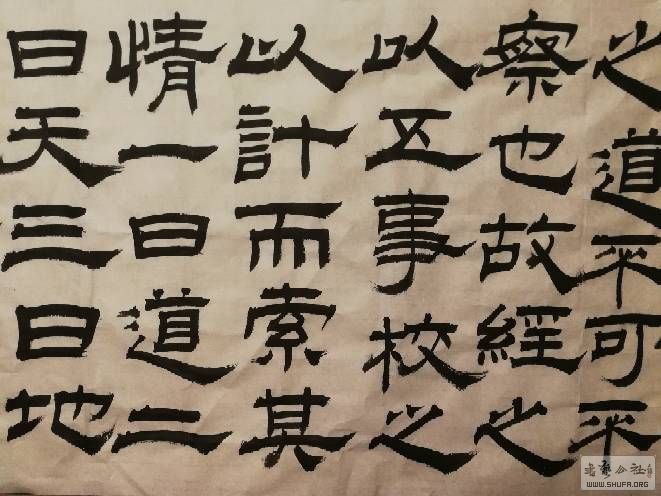 之道不可不
察也故經之
以五事校之
以計而索其
情一曰道二
曰天三曰地
WWW.SHUFA.ORG